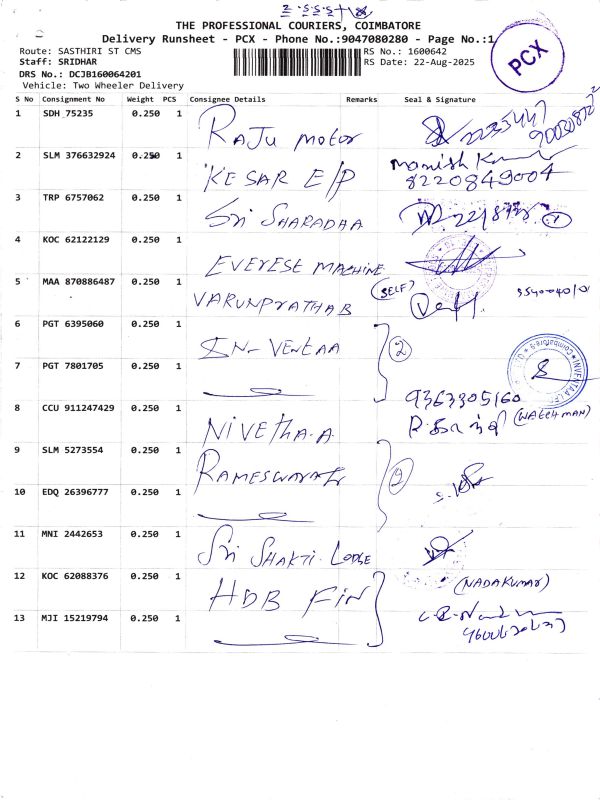 THE PROFESSIONAL COURIERS, COIMBATORE
Delivery Runsheet - PCX - Phone No.:9047080280 - Page No.:1
PCX
Route: SASTHIRI ST CMS
RS No.: 1600642
Staff: SRIDHAR
RS Date: 22-Aug-2025
DRS No.: DCJB160064201
Vehicle: Two Wheeler Delivery
S No Consignment No Weight PCS Consignee Details Remarks Seal & Signature
1 SDH 75235 0.250 1 RAJU MOTOR
2 SLM 376632924 0.250 1 KESAR E/P Manish
8220849004
3 TRP 6757062 0.250 1 Sri SHARADHA
4 KOC 62122129 0.250 1 EVEREST MACHINE
5 MAA 870886487 0.250 1 VARUNPRATHAB (SELF)
6 PGT 6395060 0.250 1 2
7 PGT 7801705 0.250 1
9363305160
8 CCU 911247429 0.250 1 NIVETHA.A (WATCHMAN)
9 SLM 5273554 0.250 1 2
10 EDQ 26396777 0.250 1
11 MNI 2442653 0.250 1 Sri SHAKTI LODGE
12 KOC 62088376 0.250 1 HDB FIN (NADAKUMAR)
13 MJI 15219794 0.250 1